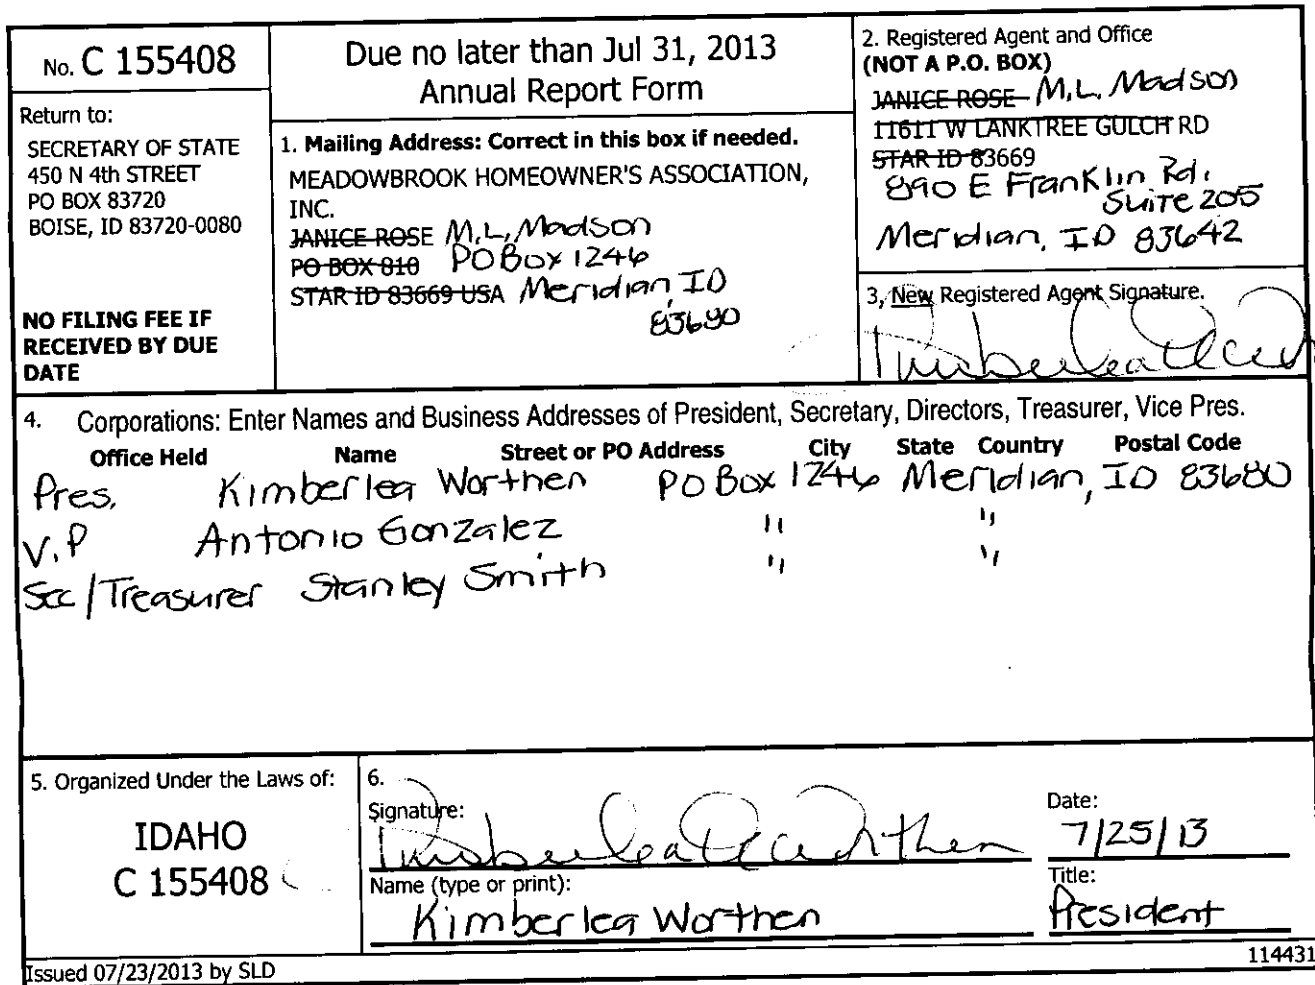 No. C 155408
Return to:
SECRETARY OF STATE
450 N 4th STREET
PO BOX 83720
BOISE, ID 83720-0080
NO FILING FEE IF
RECEIVED BY DUE
DATE
Due no later than Jul 31, 2013
Annual Report Form
1. Mailing Address: Correct in this box if needed.
MEADOWBROOK HOMEOWNER'S ASSOCIATION,
INC.
JANICE ROSE M.L. Madson
PO BOX 810 PO Box 1246
STAR ID 83669 USA Meridian, ID
83680
2. Registered Agent and Office
(NOT A P.O. BOX)
JANICE ROSE M.L. Madson
11611 W LANKTREE GULCH RD
STAR ID 83669
890 E Franklin Rd.
Suite 205
Meridian, ID 83642
3. New Registered Agent Signature.
4. Corporations: Enter Names and Business Addresses of President, Secretary, Directors, Treasurer, Vice Pres.
Office Held Name Street or PO Address City State Country Postal Code
Pres. Kimberlea Worthen PO Box 1246 Meridian, ID 83680
V.P Antonio Gonzalez " "
Sec/Treasurer Stanley Smith " "
5. Organized Under the Laws of:
IDAHO
C 155408
6.
Signature:
Date:
7/25/13
Name (type or print):
Kimberlea Worthen
Title:
President
Issued 07/23/2013 by SLD
114431